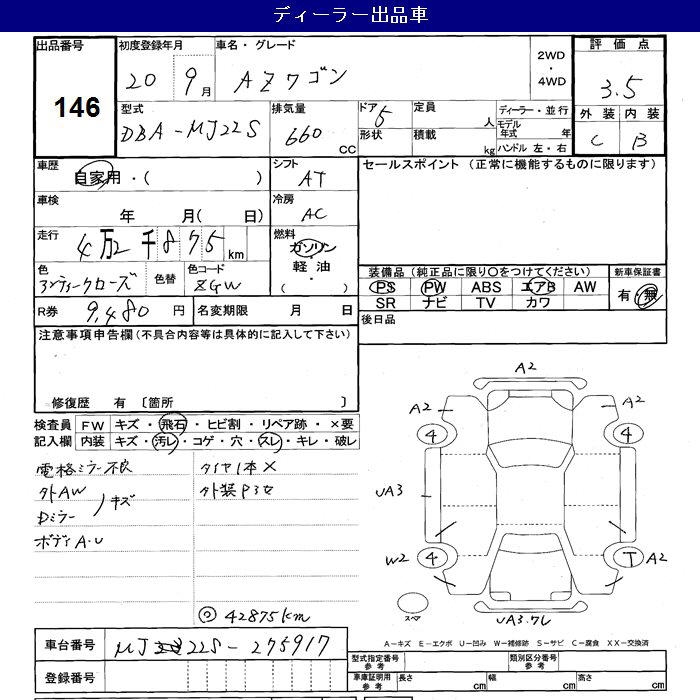 ディーラー出品車
出品番号 初度登録年月 車名・グレード 評価点
146
20 9月 AZワゴン 2WD・4WD 3.5
型式 排気量 ドア 定員 ディーラー・並行 外装 内装
DBA-MJ22S 660 CC 5 人 モデル年式 年 C B
形状 積載 kg ハンドル 左・右
車歴 シフト セールスポイント (正常に機能するものに限ります)
自家用・( ) AT
車検 冷房
年 月( 日) AC
走行 燃料
4万2千875km ガソリン・軽油・( )
色 色替 色コード 装備品 (純正品に限り○をつけてください) 新車保証書
ZGW PS PW ABS エアB AW 有・無
SR ナビ TV カワ
R券 9,480円 名変期限 月 日 後日品
注意事項申告欄 (不具合内容等は具体的に記入して下さい)
修復歴 有 〔箇所 〕
検査員 FW キズ・飛石・ヒビ割・リペア跡・×要
記入欄 内装 キズ・汚レ・コゲ・穴・スレ・キレ・破レ
電格ミラー不良 タイヤ1本×
外AW 外装P3女
キズ
Dミラー
ボディA・U
◎42875km
A2
A2 A2
4 4
UA3
W2 4 T A2
スペア
UA3.フレ
A-キズ E-エクボ U-凹み W-補修跡 S-サビ C-腐食 XX-交換済
車台番号 MJ22S-275917
型式指定番号 参考 類別区分番号 参考
登録番号 車庫証明用 参考 長さ cm 幅 cm 高さ cm